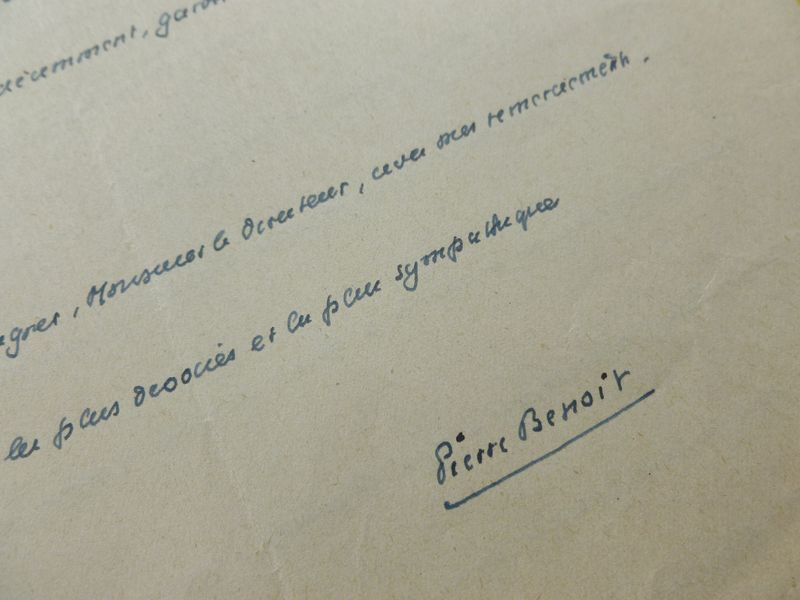 récemment, gard
agréer, Monsieur le Directeur, avec mes remerciements.
les plus dévoués et les plus sympathiques
Pierre Benoit